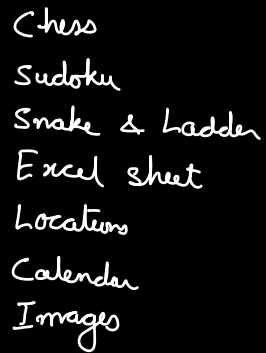 Chess
Sudoku
Snake & Ladder
Excel sheet
Locations
Calendar
Images